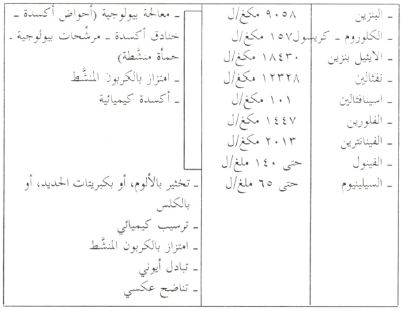 ـ البنزين ٩٠٥٨ مكغ/ل ـ معالجة بيولوجية (أحواض أكسدة ـ
ـ الكلوروم ـ كريسول ١٥٧ مكغ/ل خنادق أكسدة ـ مرشّحات بيولوجية ـ
ـ الايثيل بنزين ١٨٤٣٠ مكغ/ل حمأة منشَّطة)
ـ نفثالين ١٢٣٢٨ مكغ/ل ـ امتزاز بالكربون المنشَّط
ـ اسينافثالين ١٠١ مكغ/ل ـ أكسدة كيميائية
ـ الفلورين ١٤٤٧ مكغ/ل
ـ الفينانثرين ٢٠١٣ مكغ/ل
ـ الفينول حتى ١٤٠ ملغ/ل
ـ السيلينيوم حتى ٦٥ ملغ/ل ـ تخثير بالألوم، أو بكبريتات الحديد، أو
بالكلس
ـ ترسيب كيميائي
ـ امتزاز بالكربون المنشَّط
ـ تبادل أيوني
ـ تناضح عكسي